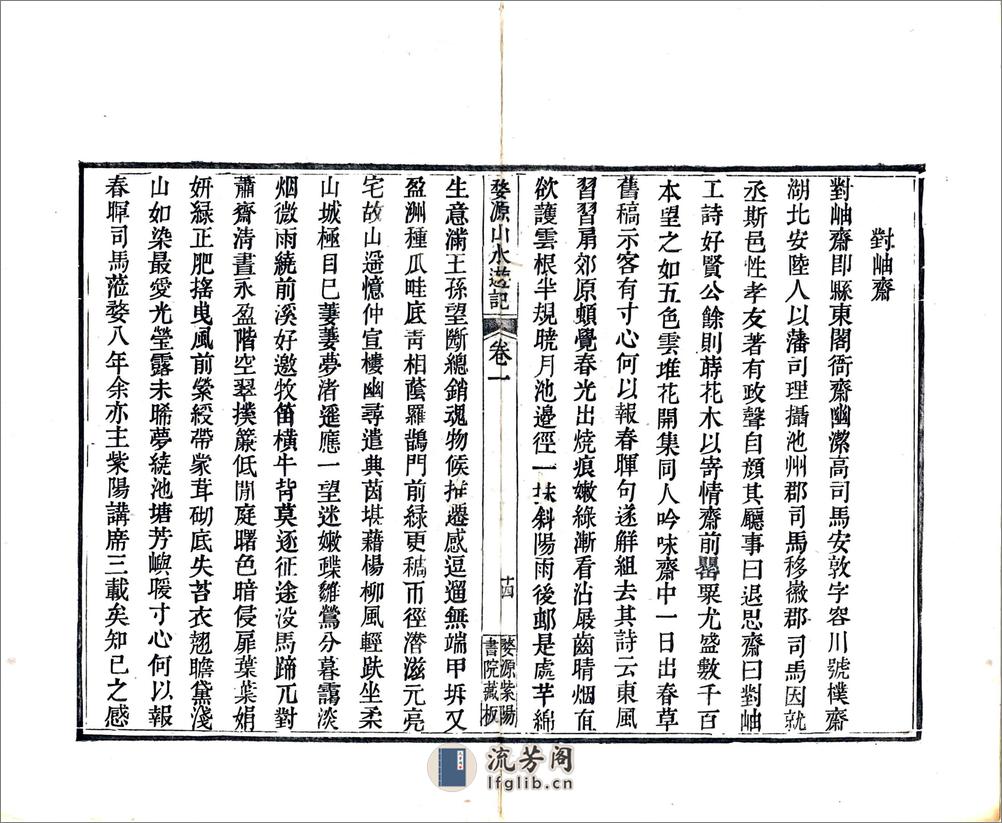 對岫齋
對岫齋卽縣東閣衙齋幽潔高司馬安敦字容川號樸齋
湖北安陸人以藩司理攝池州郡司馬移徽郡司馬因就
丞斯邑性孝友著有政聲自顏其廳事曰退思齋曰對岫
工詩好賢公餘則蒔花木以寄情齋前罌粟尤盛數千百
本望之如五色雲堆花開集同人吟咏齋中一日出春草
舊稿示客有寸心何以報春暉句遂解組去其詩云東風
習習扇郊原頓覺春光出燒痕嫩綠漸看沾屐齒晴烟直
欲護雲根半規曉月池邊徑一抹斜陽雨後邨是處芊綿
婺源山水遊記
卷一
十四
婺源紫陽
書院藏板
生意滿王孫望斷總銷魂物候推遷感逗遛無端甲坼又
盈洲種瓜畦底靑相蔭羅鵲門前綠更稠而徑潛滋元亮
宅故山遥憶仲宣樓幽尋遣典茵堪藉楊柳風輕趺坐柔
山城極目已萋萋夢渚遥應一望迷嫩蹀雛鶯分暮靄淡
烟微雨繞前溪好邀牧笛橫牛背莫逐征途没馬蹄兀對
蕭齋清晝永盈階空翠撲簾低閒庭曙色暗侵扉葉葉娟
妍緑正肥搖曳風前縈綬帶蒙茸砌底失苔衣翹瞻黛淺
山如染最愛光瑩露未晞夢繞池塘芳嶼暖寸心何以報
春暉司馬蒞婺八年余亦主紫陽講席三載矣知己之感
流芳阁
lfglib.cn